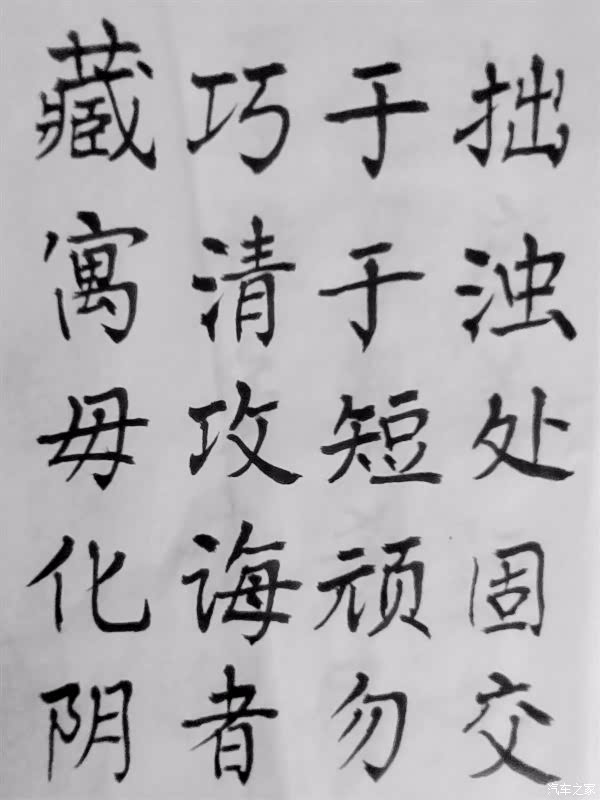 藏巧于拙
寓清于浊
毋攻短处
化诲顽固
阴者勿交
汽车之家